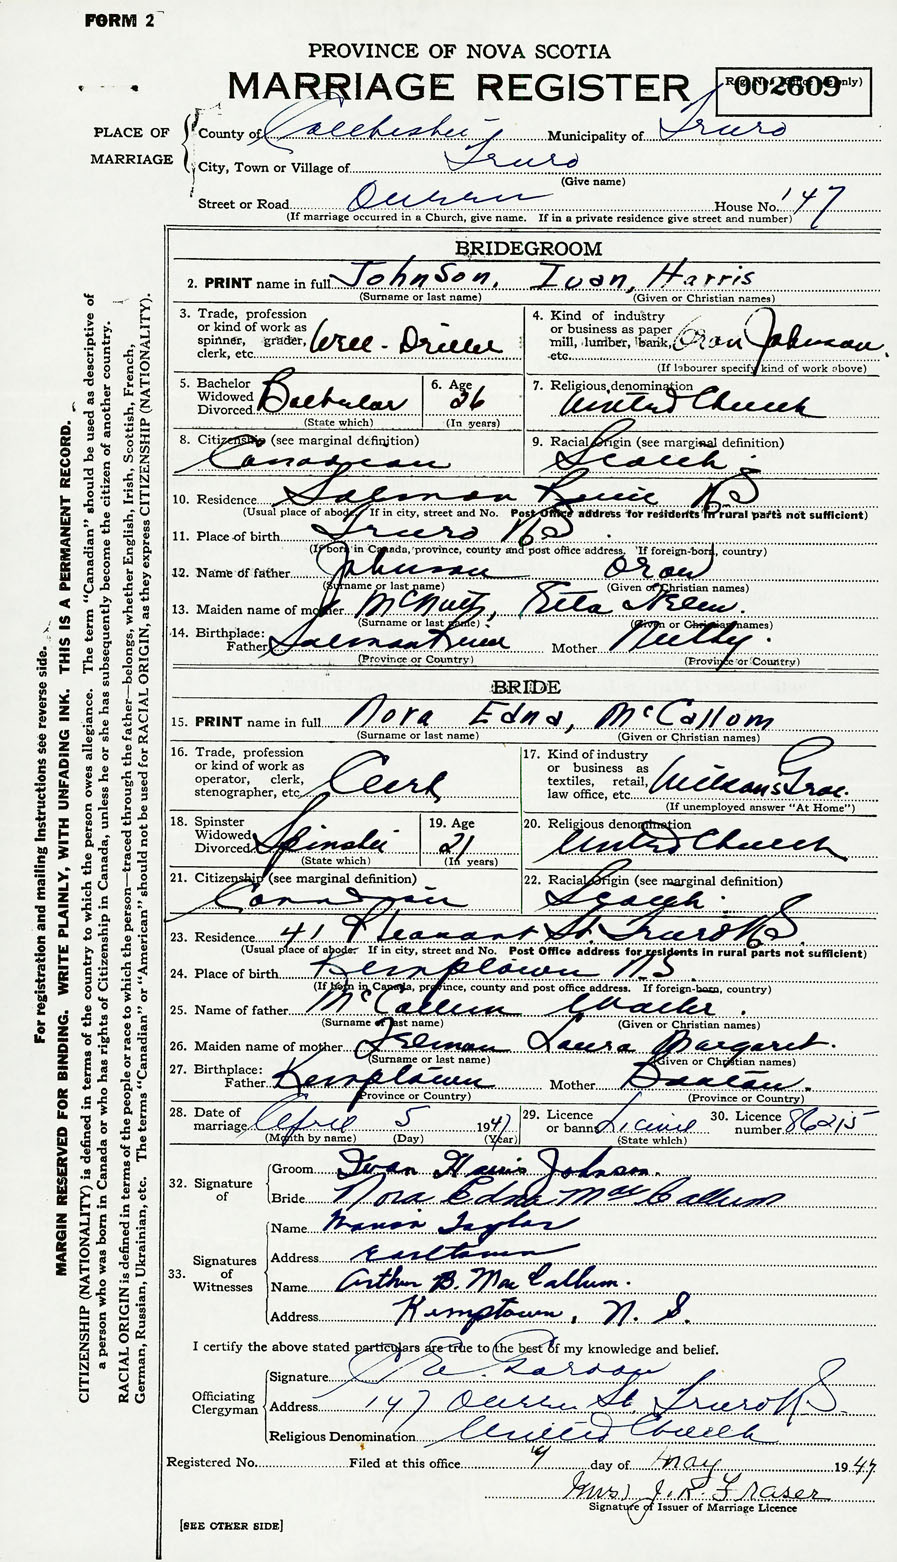 FORM 2
PROVINCE OF NOVA SCOTIA
MARRIAGE REGISTER
002609
PLACE OF MARRIAGE
County of Colchester Municipality of Truro
City, Town or Village of Truro
(Give name)
Street or Road Queen House No. 147
(If marriage occurred in a Church, give name. If in a private residence give street and number)
BRIDEGROOM
2. PRINT name in full Johnson, Ivan, Harris
(Surname or last name) (Given or Christian names)
3. Trade, profession or kind of work as spinner, grader, clerk, etc. Well-Driller
4. Kind of industry or business as paper mill, lumber, bank, etc. Oran Johnson.
(If labourer specify kind of work above)
5. Bachelor Widowed Divorced Bachelor
(State which)
6. Age 26
(In years)
7. Religious denomination United Church
8. Citizenship (see marginal definition) Canadian
9. Racial Origin (see marginal definition) Scotch
10. Residence Salmon River N S
(Usual place of abode. If in city, street and No. Post Office address for residents in rural parts not sufficient)
11. Place of birth Truro N S
(If born in Canada, province, county and post office address. If foreign-born, country)
12. Name of father Johnson Oran
(Surname or last name) (Given of Christian names)
13. Maiden name of mother McNutt, Etta
(Surname or last name) (Given or Christian names)
14. Birthplace: Father Salmon River Mother Nuttby.
(Province or Country) (Province or Country)
BRIDE
15. PRINT name in full Nora Edna, McCallum
(Surname or last name) (Given or Christian names)
16. Trade, profession or kind of work as operator, clerk, stenographer, etc. Clerk
17. Kind of industry or business as textiles, retail, law office, etc.
(If unemployed answer "At Home")
18. Spinster Widowed Divorced Spinster
(State which)
19. Age 21
(In years)
20. Religious denomination United Church
21. Citizenship (see marginal definition) Canadian
22. Racial Origin (see marginal definition) Scotch.
23. Residence 41 Pleasant St. Truro N S
(Usual place of abode: If in city, street and No. Post Office address for residents in rural parts not sufficient)
24. Place of birth Kemptown N S
(If born in Canada, province, county and post office address. If foreign-born, country)
25. Name of father McCallum Walter.
(Surname or last name) (Given or Christian names)
26. Maiden name of mother Laura Margaret.
(Surname or last name) (Given or Christian names)
27. Birthplace: Father Kemptown Mother
(Province or Country) (Province or Country)
28. Date of marriage April 5 1947
(Month by name) (Day) (Year)
29. Licence or banns Licence
(State which)
30. Licence number 86215
32. Signature of
Groom Ivan Harris Johnson.
Bride Nora Edna MacCallum
33. Signatures of Witnesses
Name Taylor
Address Earltown
Name Arthur B. MacCallum.
Address Kemptown, N. S.
I certify the above stated particulars are true to the best of my knowledge and belief.
Officiating Clergyman
Signature
Address 147 Queen St. Truro N S.
Religious Denomination United Church
Registered No. Filed at this office day of May 1947
Mrs J. R. Fraser
Signature of Issuer of Marriage Licence
[SEE OTHER SIDE]
For registration and mailing instructions see reverse side.
MARGIN RESERVED FOR BINDING. WRITE PLAINLY, WITH UNFADING INK. THIS IS A PERMANENT RECORD.
CITIZENSHIP (NATIONALITY) is defined in terms of the country to which the person owes allegiance. The term "Canadian" should be used as descriptive of
a person who was born in Canada or who has rights of Citizenship in Canada, unless he or she has subsequently become the citizen of another country.
RACIAL ORIGIN is defined in terms of the people or race to which the person—traced through the father—belongs, whether English, Irish, Scottish, French,
German, Russian, Ukrainian, etc. The terms "Canadian" or "American" should not be used for RACIAL ORIGIN, as they express CITIZENSHIP (NATIONALITY).